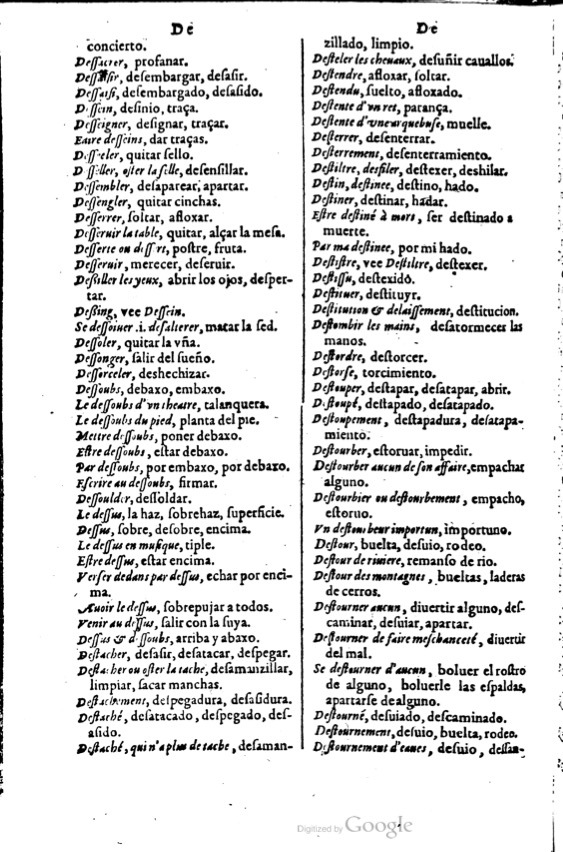 De
concierto.
Dessacrer, profanar.
Dessaisir, desembargar, desasir.
Dessaisi, desembargado, desasido.
Dessein, desinio, traça.
Desseigner, designar, traçar.
Faire desseins, dar traças.
Desseler, quitar sello.
Desseller, oster la selle, desensillar.
Dessembler, desaparear, apartar.
Dessengler, quitar cinchas.
Desserrer, soltar, afloxar.
Desseruir la table, quitar, alçar la mesa.
Desserte ou dessert, postre, fruta.
Desseruir, merecer, deseruir.
Dessiller les yeux, abrir los ojos, desper-
tar.
Dessing, vee Dessein.
Se dessoiuer .i. desalterer, matar la sed.
Dessoler, quitar la vña.
Dessonger, salir del sueño.
Dessorceler, deshechizar.
Dessoubs, debaxo, embaxo.
Le dessoubs d'vn theatre, talanquera.
Le dessoubs du pied, planta del pie.
Mettre dessoubs, poner debaxo.
Estre dessoubs, estar debaxo.
Par dessoubs, por embaxo, por debaxo.
Escrire au dessoubs, firmar.
Dessoulder, dessoldar.
Le dessus, la haz, sobrehaz, superficie.
Dessus, sobre, desobre, encima.
Le dessus en musique, tiple.
Estre dessus, estar encima.
Verser dedans par dessus, echar por enci-
ma.
Auoir le dessus, sobrepujar a todos.
Venir au dessus, salir con la suya.
Dessus & dessoubs, arriba y abaxo.
Destacher, desasir, desatacar, despegar.
Destacher ou oster la tache, desamanzillar,
limpiar, sacar manchas.
Destachement, despegadura, desasidura.
Destaché, desatacado, despegado, des-
asido.
Destaché, qui n'a plus de tache, desaman-
De
zillado, limpio.
Desteler les cheuaux, desuñir cauallos.
Destendre, afloxar, soltar.
Destendu, suelto, afloxado.
Destente d'vn ret, parança.
Destente d'vne arquebuse, muelle.
Desterrer, desenterrar.
Desterrement, desenterramiento.
Destiltre, desfiler, destexer, deshilar.
Destin, destinee, destino, hado.
Destiner, destinar, hadar.
Estre destiné à mort, ser destinado a
muerte.
Par ma destinee, por mi hado.
Destistre, vee Destiltre, destexer.
Destissu, destexido.
Destituer, destituyr.
Destitution & delaissement, destitucion.
Destombir les mains, desatormeces las
manos.
Destordre, destorcer.
Destorse, torcimiento.
Destouper, destapar, desatapar, abrir.
Destoupé, destapado, desatapado.
Destoupement, destapadura, desatapa-
miento.
Destourber, estoruar, impedir.
Destourber aucun de son affaire, empachar
alguno.
Destourbier ou destourbement, empacho,
estoruo.
Vn destourbeur importun, importuno.
Destour, buelta, desuio, rodeo.
Destour de riuiere, remanso de rio.
Destour des montagnes, bueltas, laderas
de cerros.
Destourner aucun, diuertir alguno, des-
caminar, desuiar, apartar.
Destourner de faire meschanceté, diuertir
del mal.
Se destourner d'aucun, boluer el rostro
de alguno, boluerle las espaldas,
apartarse de alguno.
Destourné, desuiado, descaminado.
Destournement, desuio, buelta, rodeo.
Destournement d'eaues, desuio, dessan-
Digitized by Google